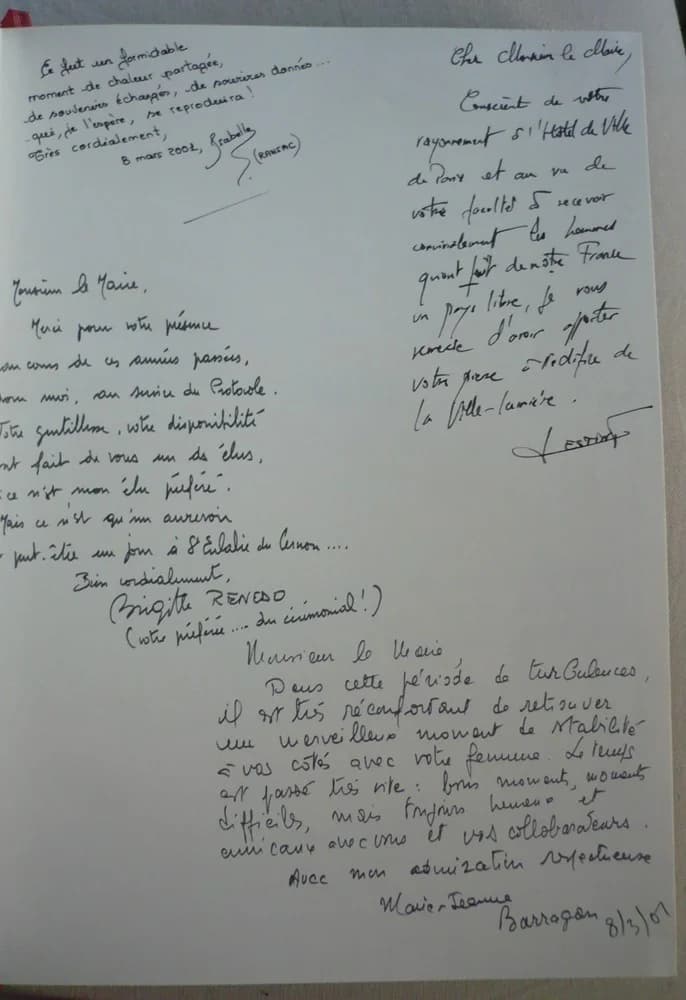 Ce fut un formidable
moment de chaleur partagée,
de souvenirs échangés, de sourires donnés...
qui, je l'espère, se reproduira !
Très cordialement,
8 mars 2001, Isabelle
(RANSAC)
Cher Monsieur le Maire,
Conscient de votre
rayonnement à l'Hôtel de Ville
de Paris et au vu de
votre faculté à recevoir
convivialement les hommes
qui ont fait de notre France
un pays libre, je vous
remercie d'avoir apporter
votre pierre à l'édifice de
la Ville-Lumière.
Monsieur le Maire,
Merci pour votre présence
au cours de ces années passées,
pour moi, au service du Protocole.
Votre gentillesse, votre disponibilité
ont fait de vous un des élus,
si ce n'est mon élu préféré.
Mais ce n'est qu'un aurevoir
peut-être un jour à St Eulalie du Cernon ....
Bien cordialement,
Brigitte RENEDO
(votre préférée .... du cérémonial !)
Monsieur le Maire,
Dans cette période de turbulences,
il est très réconfortant de retrouver
un merveilleux moment de stabilité
à vos côtés avec votre femme. Le temps
est passé très vite : bons moments, moments
difficiles, mais toujours humains et
amicaux avec vous et vos collaborateurs.
Avec mon admiration respectueuse
Marie-Jeanne
Barragan 8/3/01